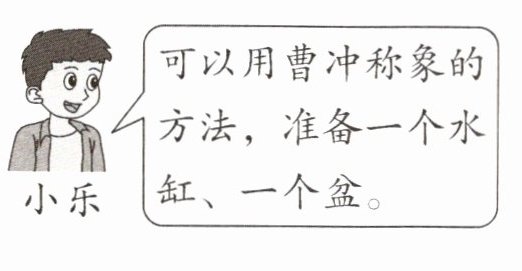 可以用曹冲称象的
方法，准备一个水
缸、一个盆。
小乐